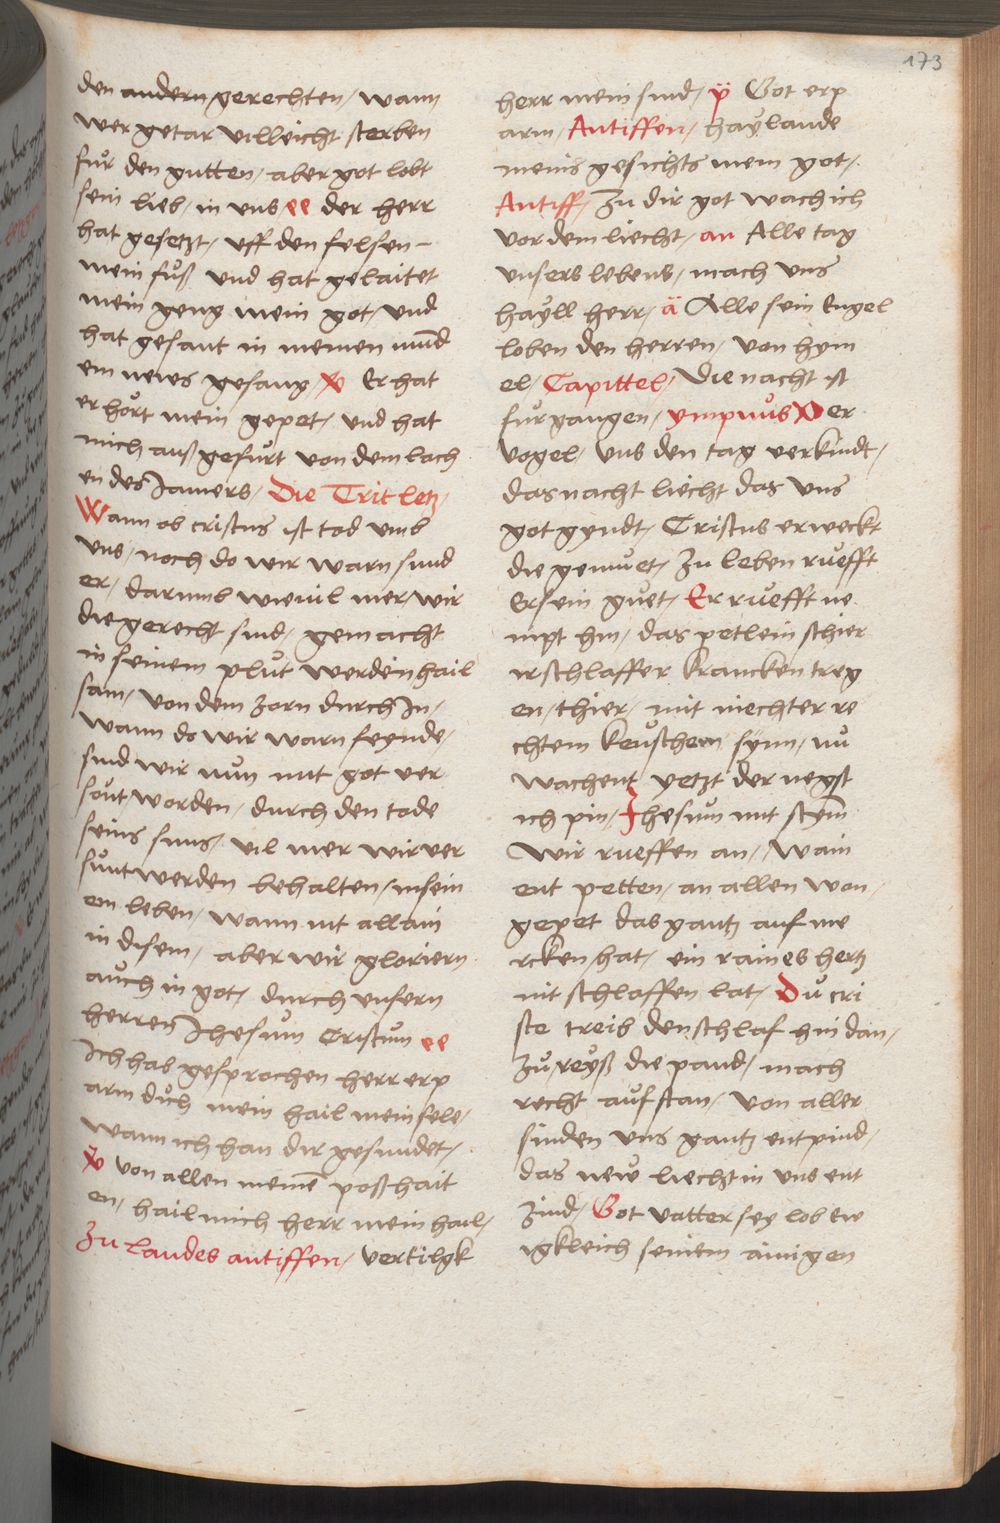 173
den andern gerechten / wann
wer getar villeicht sterben
fur den gutten / aber got lobt
sein lieb / in uns ee der herr
hat gesetzt / uff den felsen –
mein fuß und hat gelaitet
mein geng mein got / und
hat gesant in meinen mud
ein news gesang / Er hat
erhört mein gepet / und hat
mich auß gefurt von dem lach
en des Jamers / Die Trit letz /
Wann ob cristus ist tod umb
uns / noch do wir warn sund
er / darumb wievil mer / wir
die gerecht sind / gemacht
in seinem plut werden hail
sam / von dem zorn durch In /
wann do wir warn feynde /
sind wir nun mit got ver
sönt worden / durch den tode
seins suns / vil mer wir ver
sunt werden behalten / in sein
em leben / wann nit allain
in disem / aber wir gloriern
auch in got / durch unsern
herren Jhesum Cristum ee
Ich hab gesprochen herr erp
arm dich mein hail mein sele /
wann ich han dir gesundet /
von allen meinē poßhait
en / hail mich herr mein hail /
Zu Laudes antiffen / vertilgk
herr mein sind / ÿ Got erp
arm / Antiffen / haylande
meins gesichts mein got /
Antiff / Zu dir got wach ich
vor dem liecht / an Alle tag
unsers lebens / mach uns
hayll herr / ä Alle sein Engel
loben den herren / von hym
el / Capittel / Die nacht ist
furgangen / ympnus Der
vogel / uns den tag verkindt /
das nacht liecht das uns
got gyndt / Cristus erweckt
die gemuet / zu leben ruefft
Er sein guet / Er ruefft ne
mpt hin / das petlein schier
ir schlaffer krancken treg
en / thier / mit niechter re
chtem keuschem synn / nu
wachent yetzt der negst
ich pin / Jhesum mit stym
wir rueffen an / wain
ent petten / an allen won /
gepet das gantz auf me
rcken hat / ein raines hertz
nit schlaffen lat / Du cri
ste treib den schlaf hin dan /
zu reyß die pand / mach
recht auf stan / von aller
sinden uns gantz entpind /
das new liecht in uns ent
zind / Got vatter sey lob ew
igkleich seinem ainigen